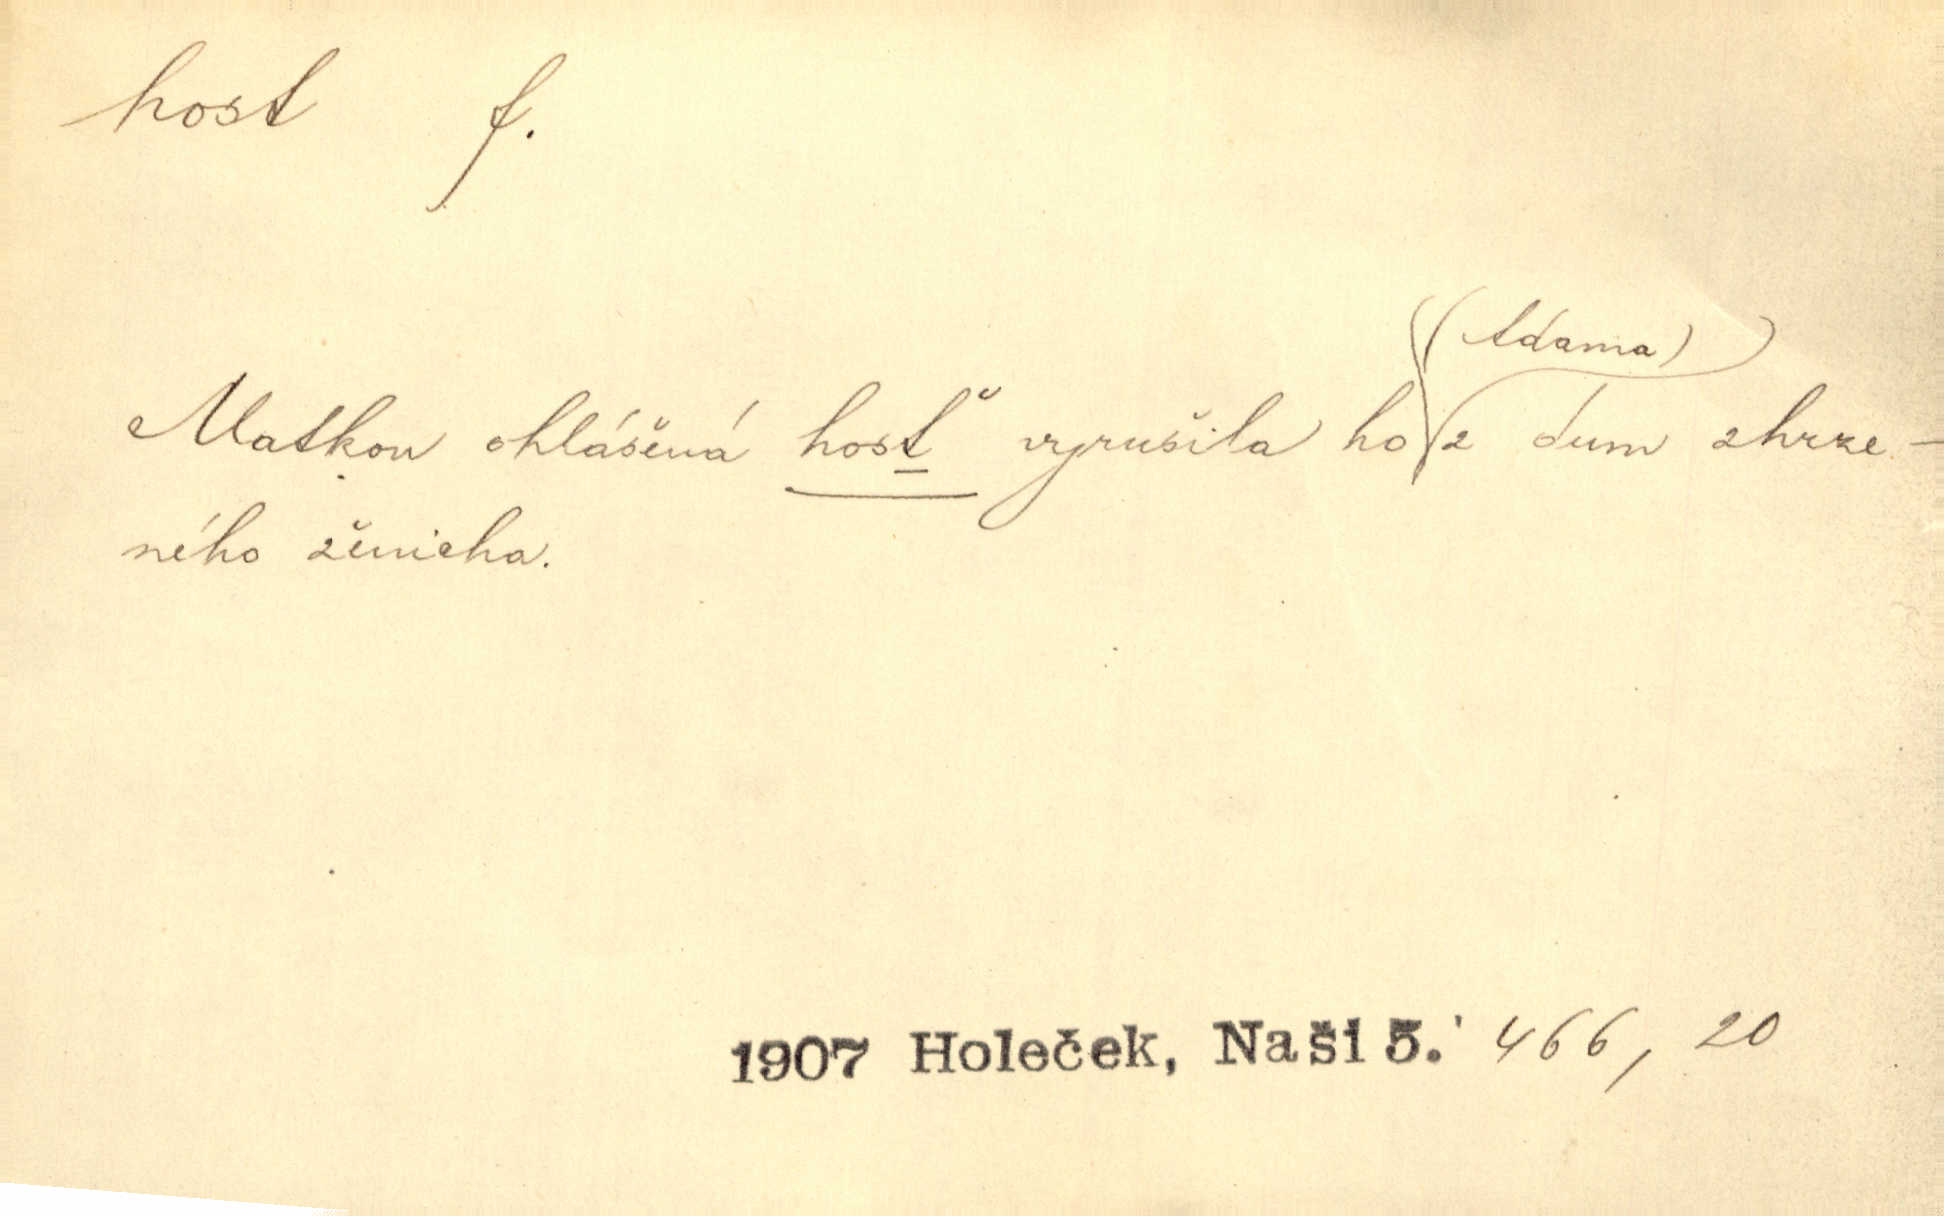 host f.
(Adama)
Matkou ohlášená hosť vyrušila ho z dum zhrze-
ného ženicha.
1907 Holeček, Naši 5. 466, 20